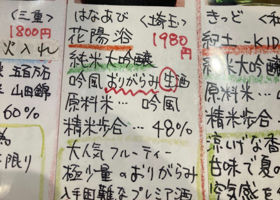 〈三重〉
1800円
火入れ
五百万石
山田錦
60%
限り
はなあび 〈埼玉〉
花陽浴 1980円
純米大吟醸
吟風 おりがらみ 生酒
原料米… 吟風
精米歩合… 48%
大人気 フルーティー
極少量のおりがらみ
入手困難なプレミア酒
きっど
紀土 -KID
純米大吟醸
原料米…
精米歩合…
涼しげな香
甘味で夏の